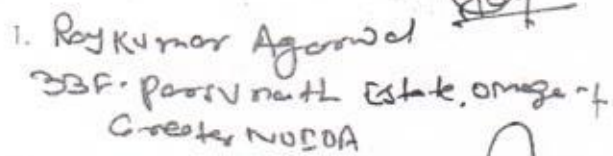 1. Rajkumar Agarwal
33F. Parsvnath Estate. omega-1
Greater NOIDA